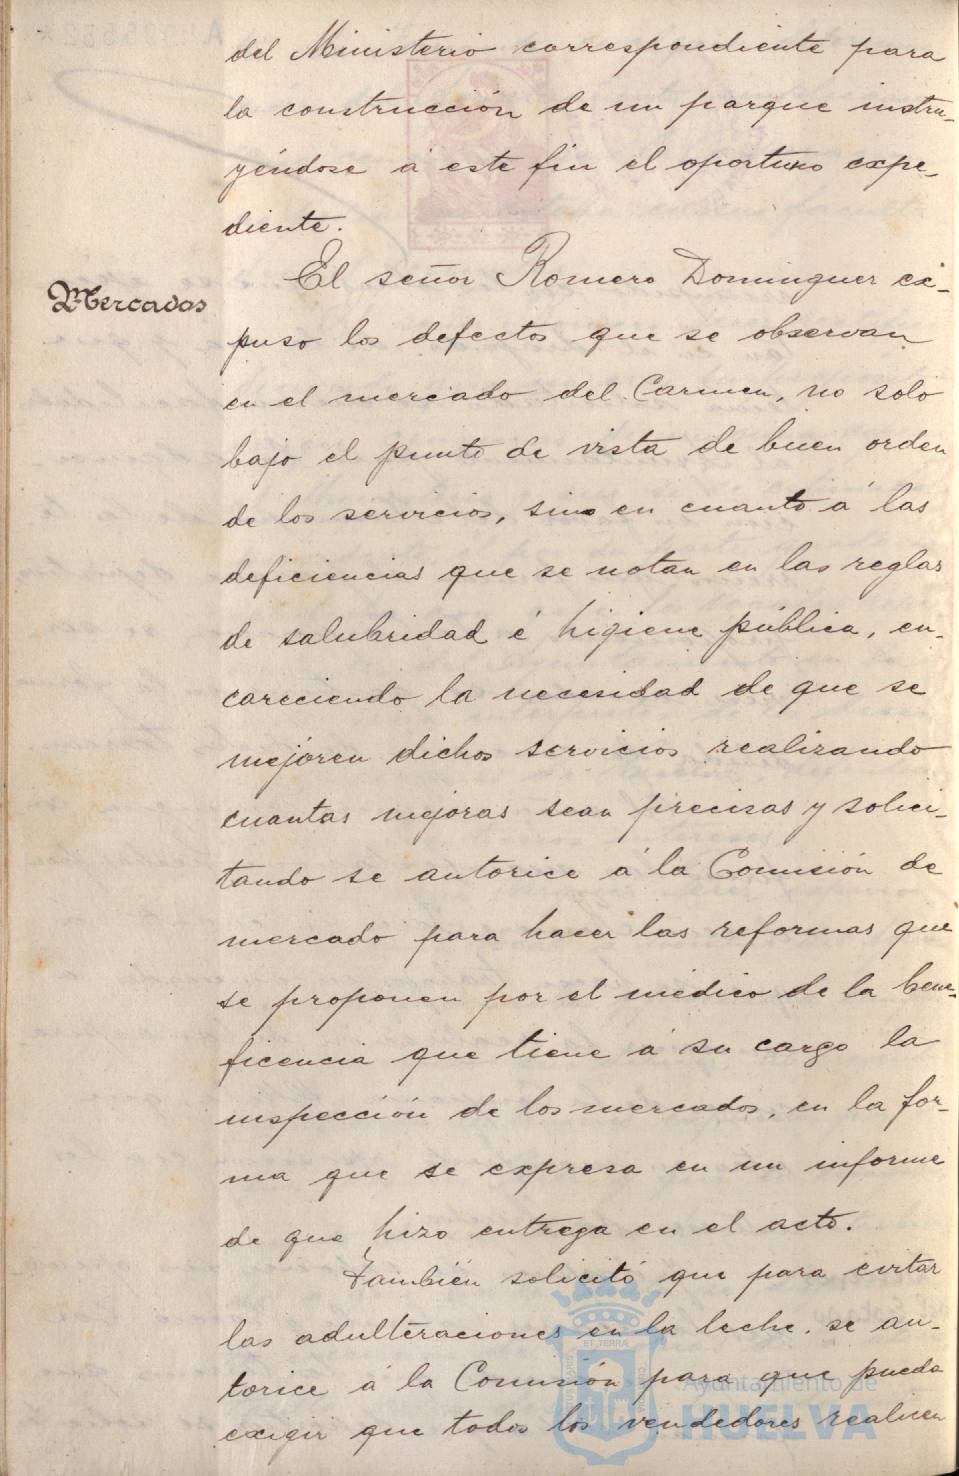 del Ministerio correspondiente para
la construcción de un parque instru-
yéndose á este fin el oportuno expe-
diente.
Mercados
El señor Romero Dominguez ex-
puso los defectos que se observan
en el mercado del Carmen, no solo
bajo el punto de vista de buen orden
de los servicios, sino en cuanto á las
deficiencias que se notan en las reglas
de salubridad é higiene pública, en-
careciendo la necesidad de que se
mejoren dichos servicios realizando
cuantas mejoras sean precisas y solici-
tando se autorice á la Comisión de
mercado para hacer las reformas que
se proponen por el médico de la bene-
ficencia que tiene á su cargo la
inspección de los mercados, en la for-
ma que se expresa en un informe
de que hizo entrega en el acto.
También solicitó que para evitar
las adulteraciones en la leche, se au-
torice á la Comisión para que pueda
exigir que todos los vendedores realicen
Ayuntamiento de
HUELVA